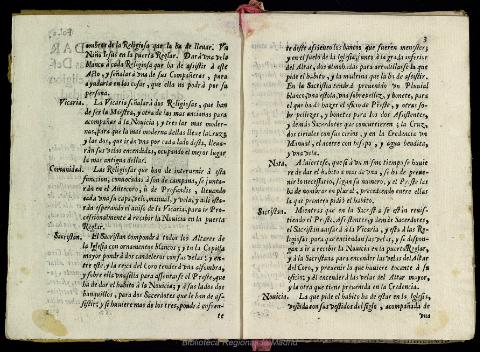 nombres de la Religiosa que la ha de llevar. Vn
Niño Iesus en la puerta Reglar. Darà vna vela
blanca à cada Religiosa que ha de asistir à este
Acto, y señalar à vna de sus Compañeras, para
ayudarla en las cosas, que ella no podrà por su
persona.
Vicaria. La Vicaria señalarà dos Religiosas, que han
de ser la Mostra, y otra de las mas ancianas para
acompañar à la Novicia; y tres las mas moder-
nas, para que la mas moderna dellas lleve la Cruz,
y las dos, que iràn vna por cada lado desta, lleva-
ràn sus velas encendidas, ocupando el mejor lugar
la mas antigua dellas.
Comunidad. Las Religiosas que han de intervenir à esta
funcion, conocidas à son de campana, se junta-
ràn en el Antecoro, in de Profundis, llevando
cada vna su capa, velo, manual, y vela; y alli esta-
ràn esperando el aviso de la Vicaria, para ir Pro-
cesionalmente à recibir la Novicia en la puerta
Reglar.
Sacristàn. El Sacristàn compondrà todos los Altares de
la Iglesia con ornamentos blancos; y en la Capilla
mayor pondrà dos candeleros con sus velas: y en-
tre este; y la rexa del Coro tenderà vna alfombra,
y sobre ella vna silla para assentarse el Preste, que
ha de dar el habito à la Novicia; y à sus lados dos
banquillos, para dos Sacerdotes que le han de as-
sistir; y si huviere mas de los tres, pondrà à diferen-
te
3
te deste assiento los bancos que fueren menester;
y en el suelo de la Iglesia, junto à la grada inferior
del Altar, dos almohadas para arrodillarse la que
pide el habito, y la madrina que la ha de assistir.
En la Sacristia tendrà prevenido vn Pluvial
blanco, vna estola, vna sobrepelliz, y bonete, para
el que ha de hazer el oficio de Preste, y otras so-
brepellizes, y bonetes para los dos Assistentes,
y demàs Sacerdotes que concurrieren; la Cruz,
dos ciriales con sus cirios, y en la Credencia vn
Manual, el acetre con hisopo, y agua bendita,
y vna vela.
Nota. Advierte, que si à vn mismo tiempo se huvie-
re de dar el habito à mas de vna, se ha de preve-
nir lo necessario, segun su numero, y el Preste las
ha de nombrar en plural, precediendo entre ellas
la que primero pidiò el habito.
Sacristàn. Mientras que en la Sacristia se estàn revis-
tiendo el Preste, Assistentes, y demàs Sacerdotes,
el Sacristàn avisarà à la Vicaria, y esta à las Re-
ligiosas para que enciendan sus velas, y se dispon-
gan à ir à recebir la Novicia en la puerta Reglar,
y à la Sacristana para encender las velas del Altar
del Coro, y prevenir lo que huviere tocante à su
oficio; y èl encenderà las velas del Altar mayor,
y la otra que tiene prevenida en la Credencia.
Novicia. La que pide el habito ha de estar en la Iglesia,
vestida con sus vestidos del siglo, acompañada de
vna
Biblioteca Regional de Madrid